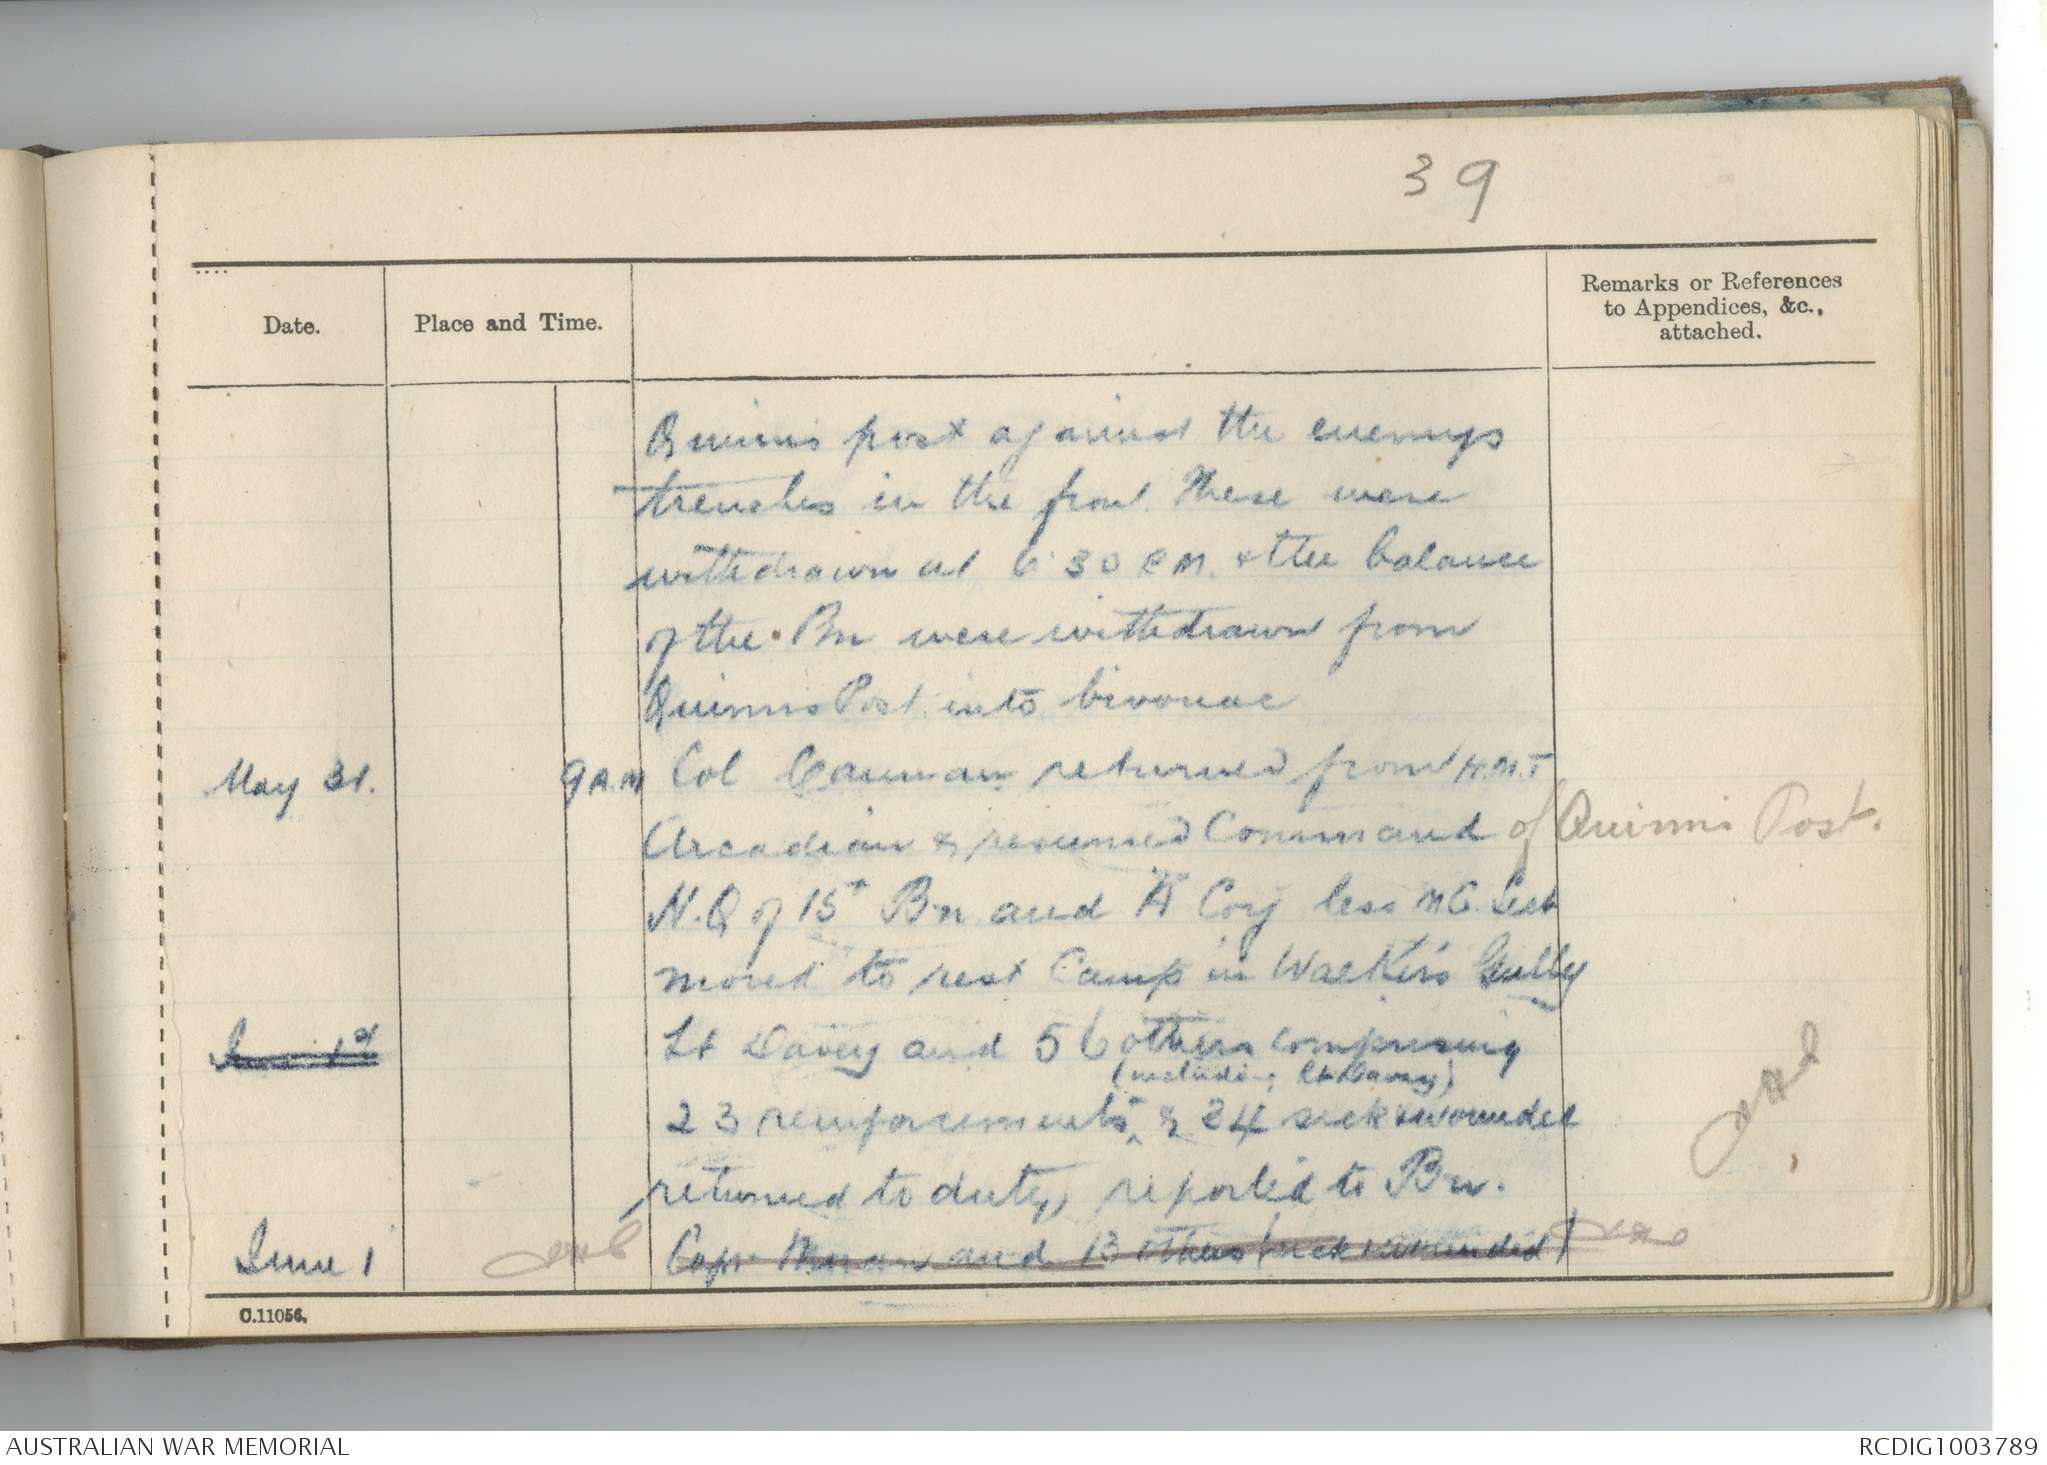 39
Date.
Place and Time.
Remarks or References
to Appendices, &c.,
attached.
Quinns post against the enemys
trenches in the front. These were
withdrawn at 6 30 P.M. & the balance
of the Bn were withdrawn from
Quinns Post into bivouac
May 31. 9 A.M Col Cannan returned from H.M.T
Arcadian & resumed Command of Quinns Post.
H.Q of 15th Bn and A Coy less M.G. Sect
moved to rest Camp in Walkers Gully
June 1st Lt Davey and 56 others comprising
(including Lt Davey)
23 reinforcements & 34 sick & wounded
returned to duty, reported to Bn.
June 1 Capt Moran and 13 others (sick & wounded)
C.11056.
AUSTRALIAN WAR MEMORIAL
RCDIG1003789